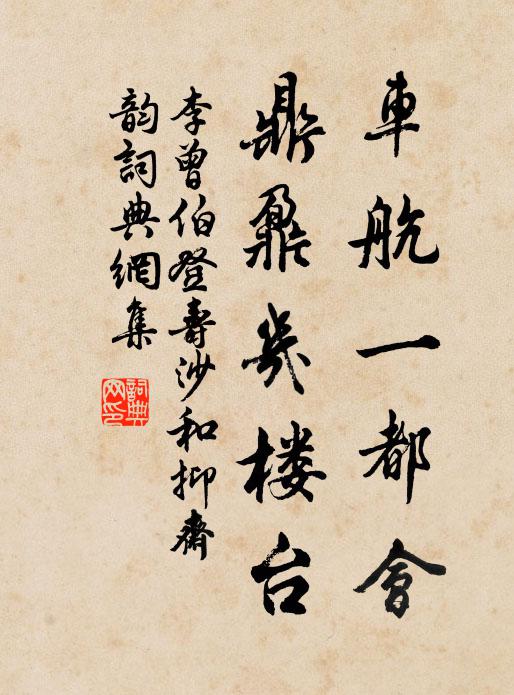 車航一都會
鼎鼐幾楼台
李曾伯登壽沙和抑齋
韵詞典網集
詞典网印